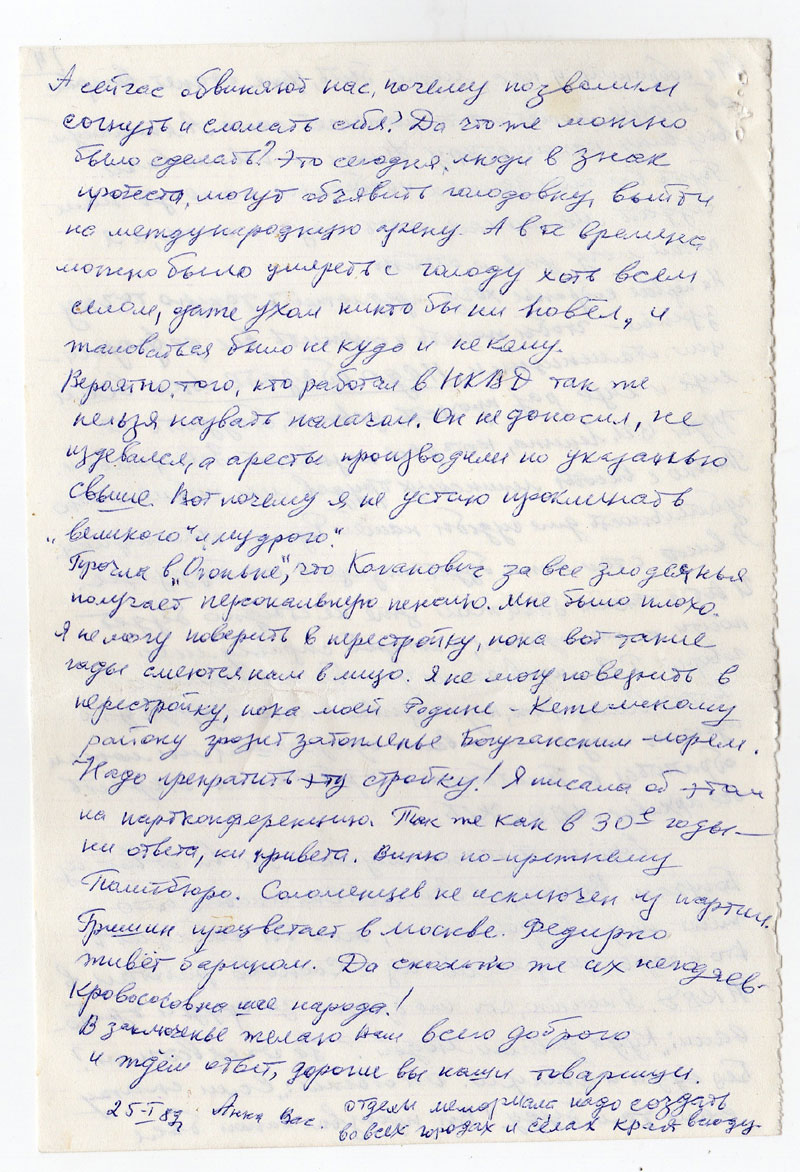 А сейчас обвиняют нас, почему позволили
согнуть и сломать себя? Да что же можно
было сделать? Это сегодня люди в знак
протеста, могут объявить голодовку, выйти
на международную арену. А в те времена
можно было умереть с голоду хоть всем
селом, даже ухом никто бы ни повёл, и
жаловаться было не куда и не кому.
Вероятно, того, кто работал в НКВД так же
нельзя назвать палачом. Он не доносил, не
издевался, а аресты производили по указанью
свыше. Вот почему я не устаю проклинать
„великого" и мудрого".
Прочла в „Огоньке", что Каганович за все злодеянья
получает персональную пенсию. Мне было плохо.
Я не могу поверить в перестройку, пока вот такие
гады смеются нам в лицо. Я не могу поверить в
перестройку, пока моей Родине - Кежемскому
району грозит затопленье Богучанским морем.
Надо прекратить эту стройку! Я писала об этом
на партконференцию. Так же как в 30е годы —
ни ответа, ни привета. Виню по-прежнему
Политбюро. Соломенцев не исключен из партии.
Гришин процветает в Москве. Федирко
живёт барином. Да сколько же их негодяев-
кровососов на шее народа!
В заключенье желаю Вам всего доброго
и ждём ответ, дорогие вы наши товарищи.
25-I 89г Анна Вас. отделы мемориала надо создать
во всех городах и сёлах края всюду.